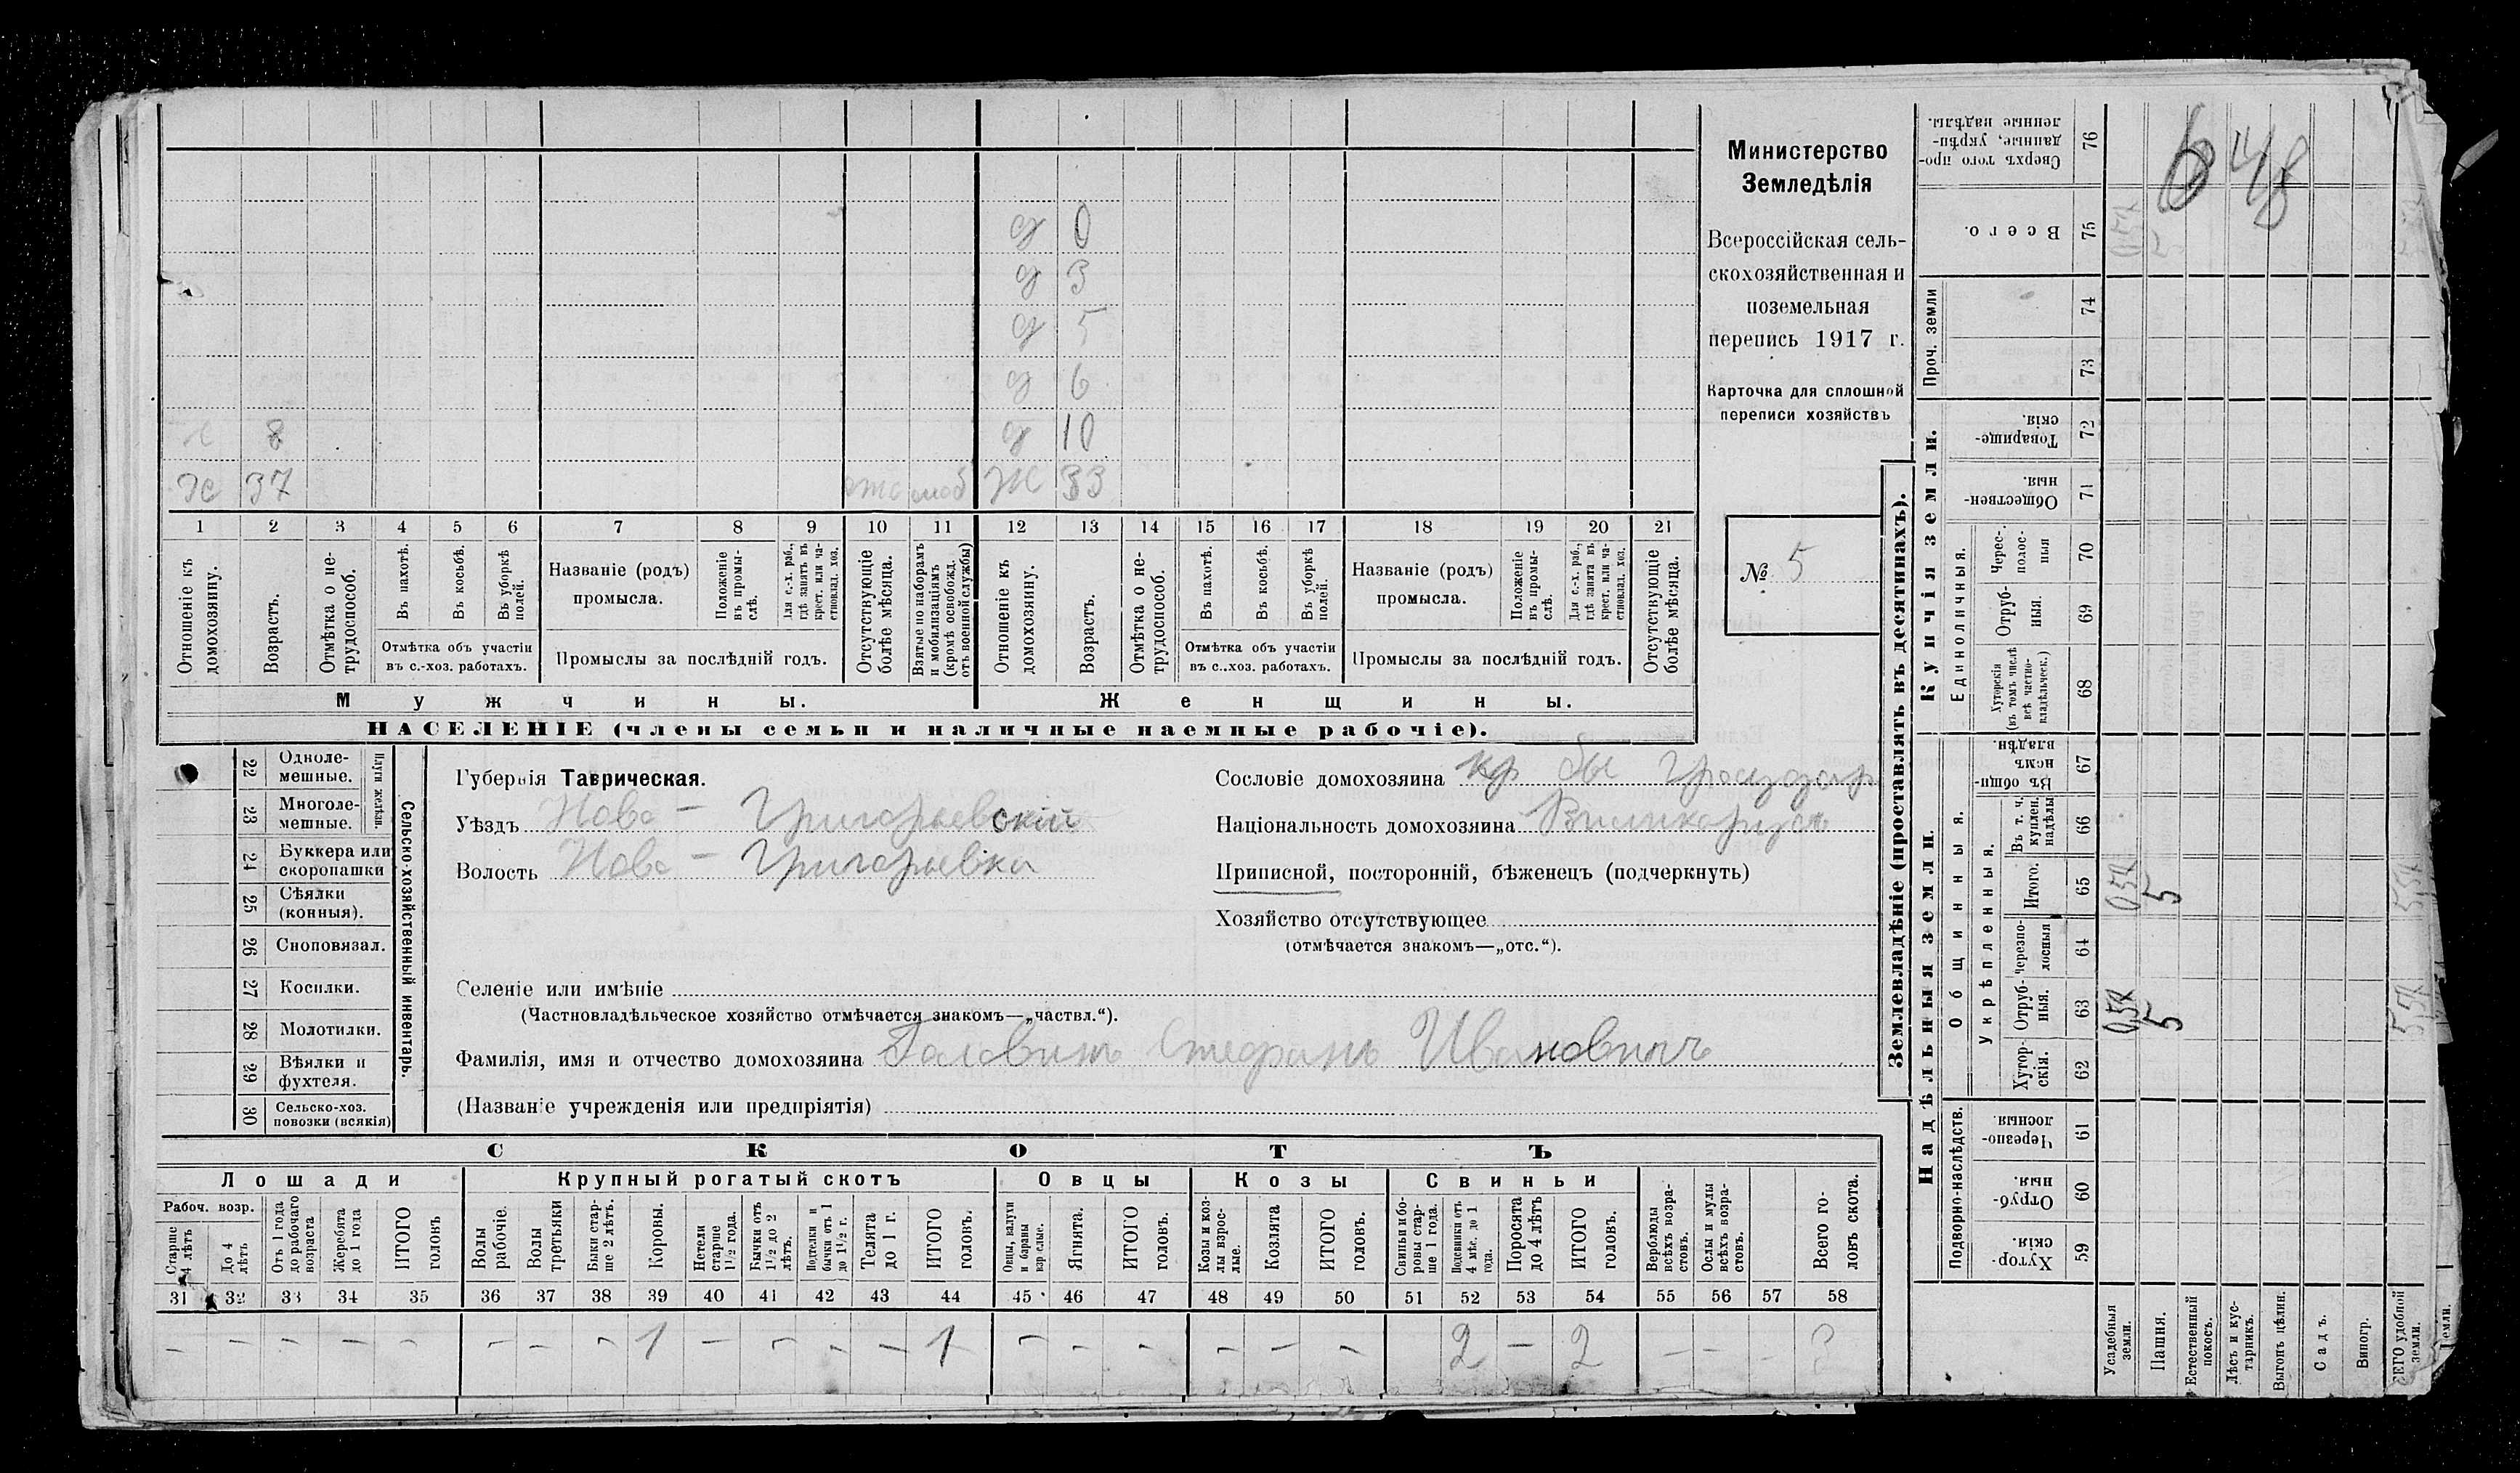 Министерство
Земледѣлія
Всероссійская сель-
скохозяйственная и
поземельная
перепись 1917 г.
Карточка для сплошной
переписи хозяйствъ
№ 5
648
д 0
д 3
д 5
д 6
8 д 10
37 моб Ж 33
1 2 3 4 5 6 7 8 9 10 11 12 13 14 15 16 17 18 19 20 21
Отношеніе къ домохозяину.
Возрастъ.
Отмѣтка о не-трудоспособ.
Въ пахотѣ.
Въ косьбѣ.
Въ уборкѣ полей.
Отмѣтка объ участіи
въ с.-хоз. работахъ.
Названіе (родъ)
промысла.
Положеніе въ промы-слѣ.
Для с.-х. раб., гдѣ занятъ въ крест. или ча-стновлад. хоз.
Промыслы за послѣдній годъ.
Отсутствующіе болѣе мѣсяца.
Взятые по наборамъ и мобилизаціямъ (кромѣ освобожд. отъ военной службы)
Отношеніе къ домохозяину.
Возрастъ.
Отмѣтка о не-трудоспособ.
Въ пахотѣ.
Въ косьбѣ.
Въ уборкѣ полей.
Отмѣтка объ участіи
въ с.-хоз. работахъ.
Названіе (родъ)
промысла.
Положеніе въ промы-слѣ.
Для с.-х. раб., гдѣ занята въ крест. или ча-стновлад. хоз.
Промыслы за послѣдній годъ.
Отсутствующіе болѣе мѣсяца.
Мужчины. Женщины.
НАСЕЛЕНІЕ (члены семьи и наличные наемные рабочіе).
Сельско-хозяйственный инвентарь.
Плуги желѣзн.
22 Одноле-мешные.
23 Многоле-мешные.
24 Буккера или скоропашки
25 Сѣялки (конныя).
26 Сноповязал.
27 Косилки.
28 Молотилки.
29 Вѣялки и фухтеля.
30 Сельско-хоз. повозки (всякія)
Губернія Таврическая.
Уѣздъ Ново - Григорьевскій
Волость Ново - Григорьевка
Сословіе домохозяина кр бы
Національность домохозяина Великорусъ
Приписной, посторонній, бѣженецъ (подчеркнуть)
Хозяйство отсутствующее
(отмѣчается знакомъ—„отс.“).
Селеніе или имѣніе
(Частновладѣльческое хозяйство отмѣчается знакомъ—„частвл.“).
Фамилія, имя и отчество домохозяина Головинъ Стефанъ Ивановичъ
(Названіе учрежденія или предпріятія)
СКОТЪ
Лошади Крупный рогатый скотъ Овцы Козы Свиньи
Рабоч. возр.
Старше 4 лѣтъ
До 4 лѣтъ
Отъ 1 года до рабочаго возраста
Жеребята до 1 года
ИТОГО головъ
Волы рабочіе.
Волы третьяки
Быки стар-ше 2 лѣтъ.
Коровы.
Нетели старше 1½ года.
Бычки отъ 1½ до 2 лѣтъ.
Подтелки и бычки отъ 1 до 1½ г.
Телята до 1 г.
ИТОГО головъ.
Овцы, валухи и бараны взрослые.
Ягнята.
ИТОГО головъ.
Козы и коз-лы взрос-лые.
Козлята
ИТОГО головъ.
Свиньи и бо-ровы стар-ше 1 года.
Подсвинки отъ 4 мѣс. до 1 года.
Поросята до 4 лѣтъ
ИТОГО головъ.
Верблюды всѣхъ возра-стовъ.
Ослы и мулы всѣхъ возра-стовъ.
Всего го-ловъ скота.
31 32 33 34 35 36 37 38 39 40 41 42 43 44 45 46 47 48 49 50 51 52 53 54 55 56 57 58
– – – – – – – – 1 – – – – 1 – – – – – – 2 – 2 – – –
Землевладѣніе (проставлять въ десятинахъ).
Купчія земли.
Надѣльныя земли.
76 Сверхъ того про-данные, укрѣп-ленные надѣлы.
75 Всего.
Проч. земли
74
73
72 Товарище-скія.
71 Обществен-ныя.
Единоличныя.
70 Черес-полос-ныя
69 Отруб-ныя.
68 Хуторскія (въ томъ числѣ всѣ частно-владѣльческ.)
Общинныя.
67 Въ общи-нномъ владѣн.
Укрѣпленныя.
66 Въ т. ч. куплен. надѣлы
65 Итого.
5
64 Черезпо-лосныя
63 Отруб-ныя.
5
62 Хутор-скія.
Подворно-наслѣдств.
61 Черезпо-лосныя
60 Отруб-ныя.
59 Хутор-скія.
Усадебныя земли.
Пашня.
Естественный покосъ.
Лѣсъ и кус-тарникъ.
Выгонъ цѣлин.
Садъ.
Виногр.
ВСЕГО удобной земли.
земли.